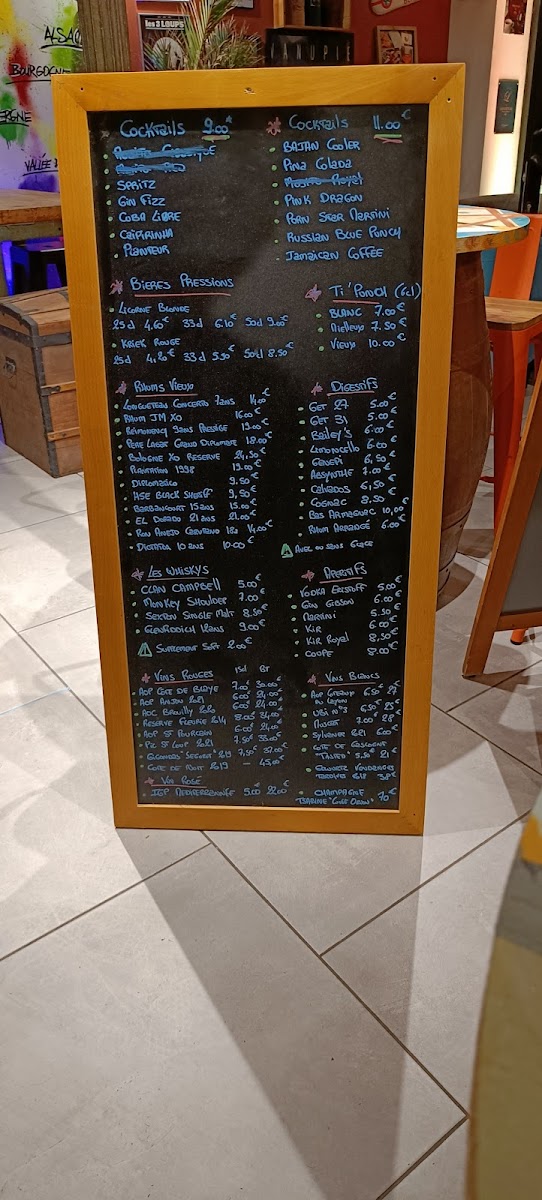 ALSAC
BOURGOGNE
ERGNE
VALLÉE D
les 3 LOUPS
Cocktails 9.00€
SPRITZ
GIN FIZZ
CUBA LIBRE
CAIPIRINHA
PLANTEUR
Cocktails 11.00€
BAJAN COOLER
PINA COLADA
MOJITO ROYAL
PINK DRAGON
PORN STAR MARTINI
RUSSIAN BLUE PUNCH
JAMAICAN COFFEE
BIÈRES PRESSIONS
LICORNE BLONDE
25cl 4.60€ 33cl 6.10€ 50cl 9.00€
KRIEK ROUGE
25cl 4,20€ 33cl 5.50€ 50cl 8.50€
TI'PUNCH (6cl)
BLANC 7.00€
MIELLEUX 7.50€
VIEUX 10.00€
RHUMS VIEUX
LONGUETEAU CONCERTO 7ans 14.00€
RHUM JM XO 16.00€
REIMONENCQ 9ans PRESTIGE 19.00€
PÈRE LABAT GRAND DIPLOMATE 18.00€
BOLOGNE XO RESERVE 24,50€
PLANTATION 1998 19.00€
DIPLOMATICO 9.50€
HSE BLACK SHERIFF 9,50€
BARBANCOURT 15ans 15.00€
EL DORADO 21ans 21.00€
RON ANEJO CENTENARIO 18a 14.00€
DICTADOR 10 ans 10.00€
DIGESTIFS
GET 27 5.00€
GET 31 5.00€
BAILEY'S 6.00€
LIMONCELLO 6.00€
GÉNÉPI 6,50€
ABSYNTHE 7.00€
CALVADOS 6,50€
COGNAC 8.50€
BAS ARMAGNAC 10,00€
RHUM ARRANGÉ 6.00€
AVEC OU SANS GLACE
LES WHISKYS
CLAN CAMPBELL 5.00€
MONKEY SHOULDER 7.00€
SEXTON SINGLE MALT 8,50€
GLENFIDDICH 12ANS 9.00€
SUPPLEMENT SOFT 2.00€
APERITIFS
VODKA ERISTOFF 5.00€
GIN GIBSON 6.00€
MARTINI 5.50€
KIR 6.00€
KIR ROYAL 8,50€
COUPE 8.00€
VINS ROUGES 15cl BT
AOP CÔTE DE BLAYE 7.00 30.00€
AOP ANJOU 2021 6.00 24.00€
AOC BROUILLY 2020 6.00 24.00€
RESERVE FLEURIE 2014 8.00 34.00€
AOP ST POURCAIN 6.00 24.00€
PIC ST LOUP 2021 7.50€ 33.00€
GIGONDAS "SEIGNEUR" 2019 7,50€ 37.00€
CÔTE DE NUIT 2019 - 45.00€
VIN ROSÉ
IGP MEDITERRANNÉE 5.00 22.00€
VINS BLANCS
AOP COTEAUX DU LAYON 6.50€ 27€
UBY N°3 6,50€ 25€
MUSCAT 7.00€ 28€
SYLVANER 2021 6.00
COTE DE GASCOGNE
"TARIQ" 5.50€ 21€
VENDANGES
TARDIVES
CHAMPAGNE 70€
TSARINE "CUVÉE ORIUM"